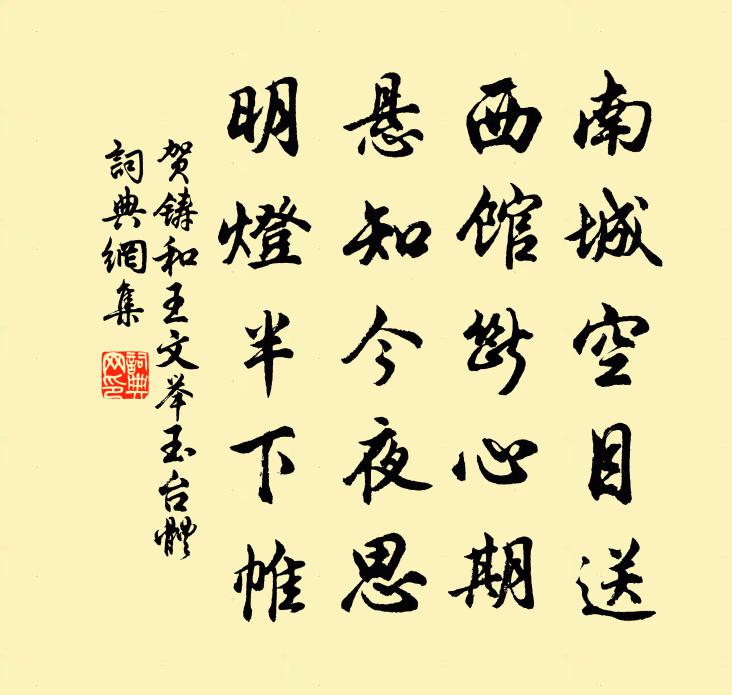 南城空目送
西馆断心期
悬知今夜思
明燈半下帷
贺铸和王文举玉台體
詞典網集
詞典網印